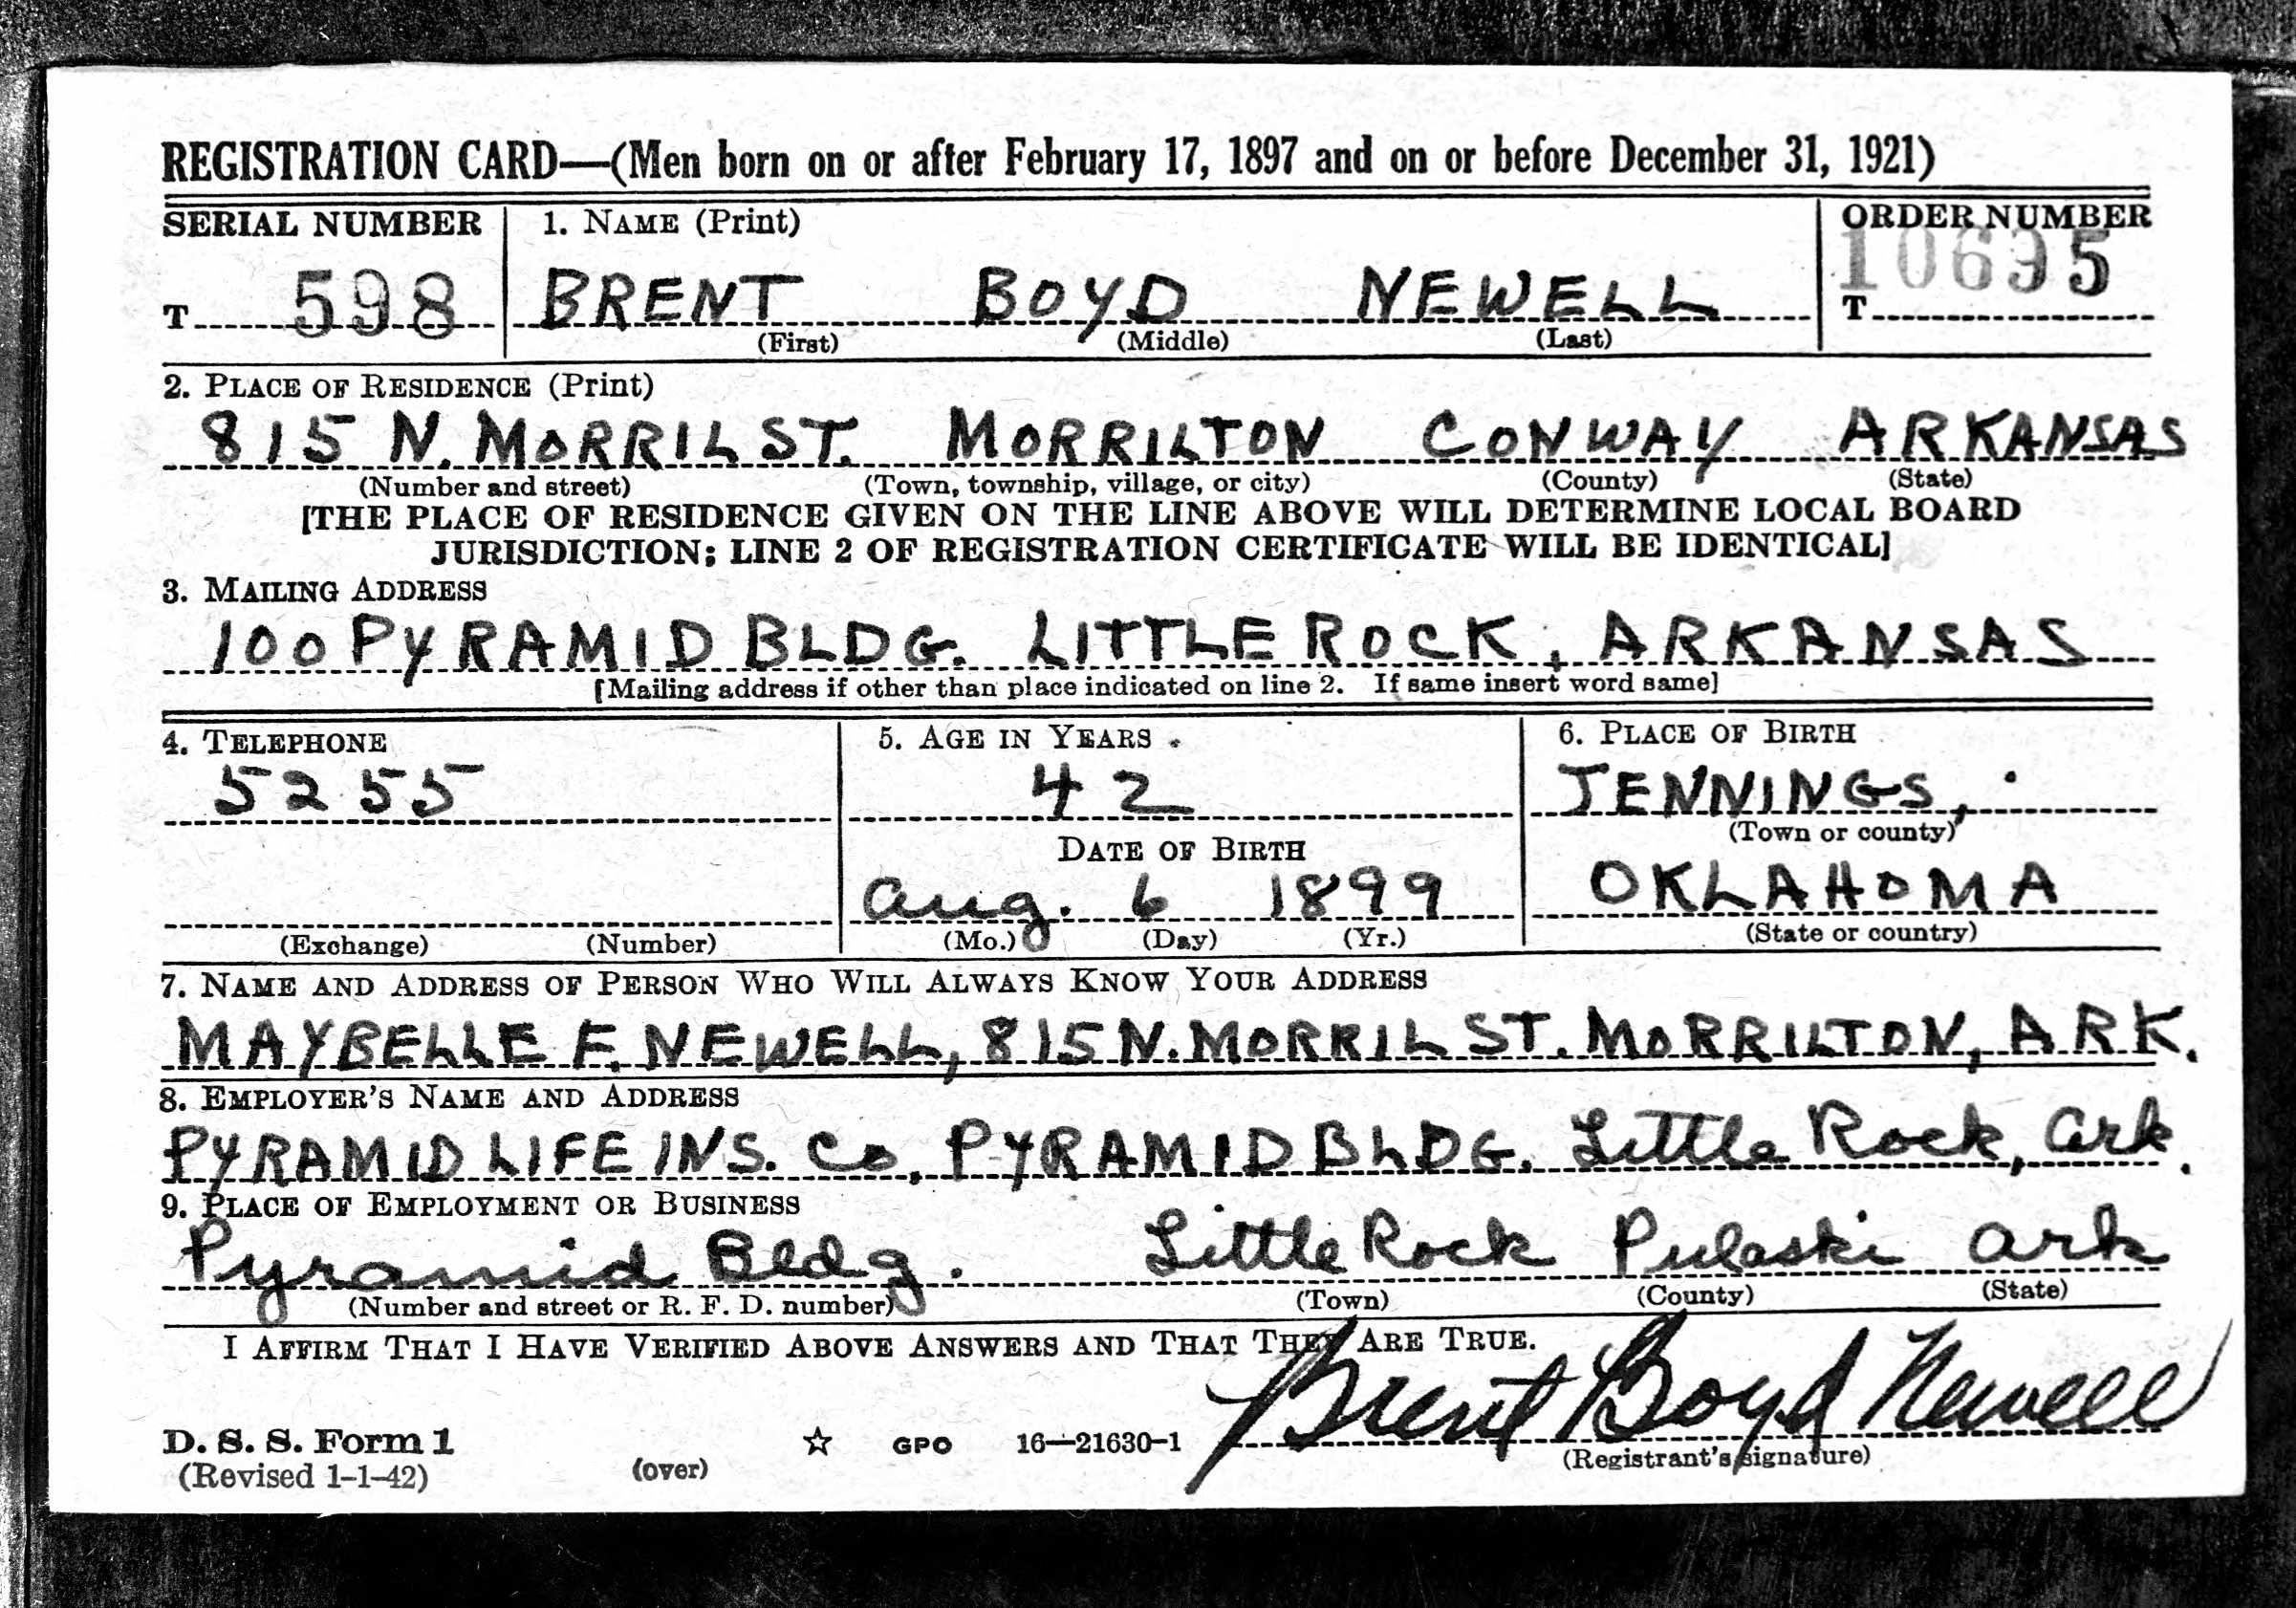 REGISTRATION CARD—(Men born on or after February 17, 1897 and on or before December 31, 1921)
SERIAL NUMBER 1. NAME (Print) ORDER NUMBER
T 598 BRENT BOYD NEWELL T 10695
(First) (Middle) (Last)
2. PLACE OF RESIDENCE (Print)
815 N. MORRIL ST. MORRILTON CONWAY ARKANSAS
(Number and street) (Town, township, village, or city) (County) (State)
[THE PLACE OF RESIDENCE GIVEN ON THE LINE ABOVE WILL DETERMINE LOCAL BOARD
JURISDICTION; LINE 2 OF REGISTRATION CERTIFICATE WILL BE IDENTICAL]
3. MAILING ADDRESS
100 PYRAMID BLDG. LITTLE ROCK, ARKANSAS
[Mailing address if other than place indicated on line 2. If same insert word same]
4. TELEPHONE 5. AGE IN YEARS 6. PLACE OF BIRTH
5255 42 JENNINGS,
(Town or county)
DATE OF BIRTH
Aug. 6 1899 OKLAHOMA
(Exchange) (Number) (Mo.) (Day) (Yr.) (State or country)
7. NAME AND ADDRESS OF PERSON WHO WILL ALWAYS KNOW YOUR ADDRESS
MAYBELLE F. NEWELL, 815 N. MORRIL ST. MORRILTON, ARK.
8. EMPLOYER'S NAME AND ADDRESS
PYRAMID LIFE INS. Co, PYRAMID BLDG. Little Rock, Ark.
9. PLACE OF EMPLOYMENT OR BUSINESS
Pyramid Bldg. Little Rock Pulaski Ark
(Number and street or R. F. D. number) (Town) (County) (State)
I AFFIRM THAT I HAVE VERIFIED ABOVE ANSWERS AND THAT THEY ARE TRUE.
Brent Boyd Newell
D. S. S. Form 1 ☆ GPO 16—21630-1 (Registrant's signature)
(Revised 1-1-42) (over)